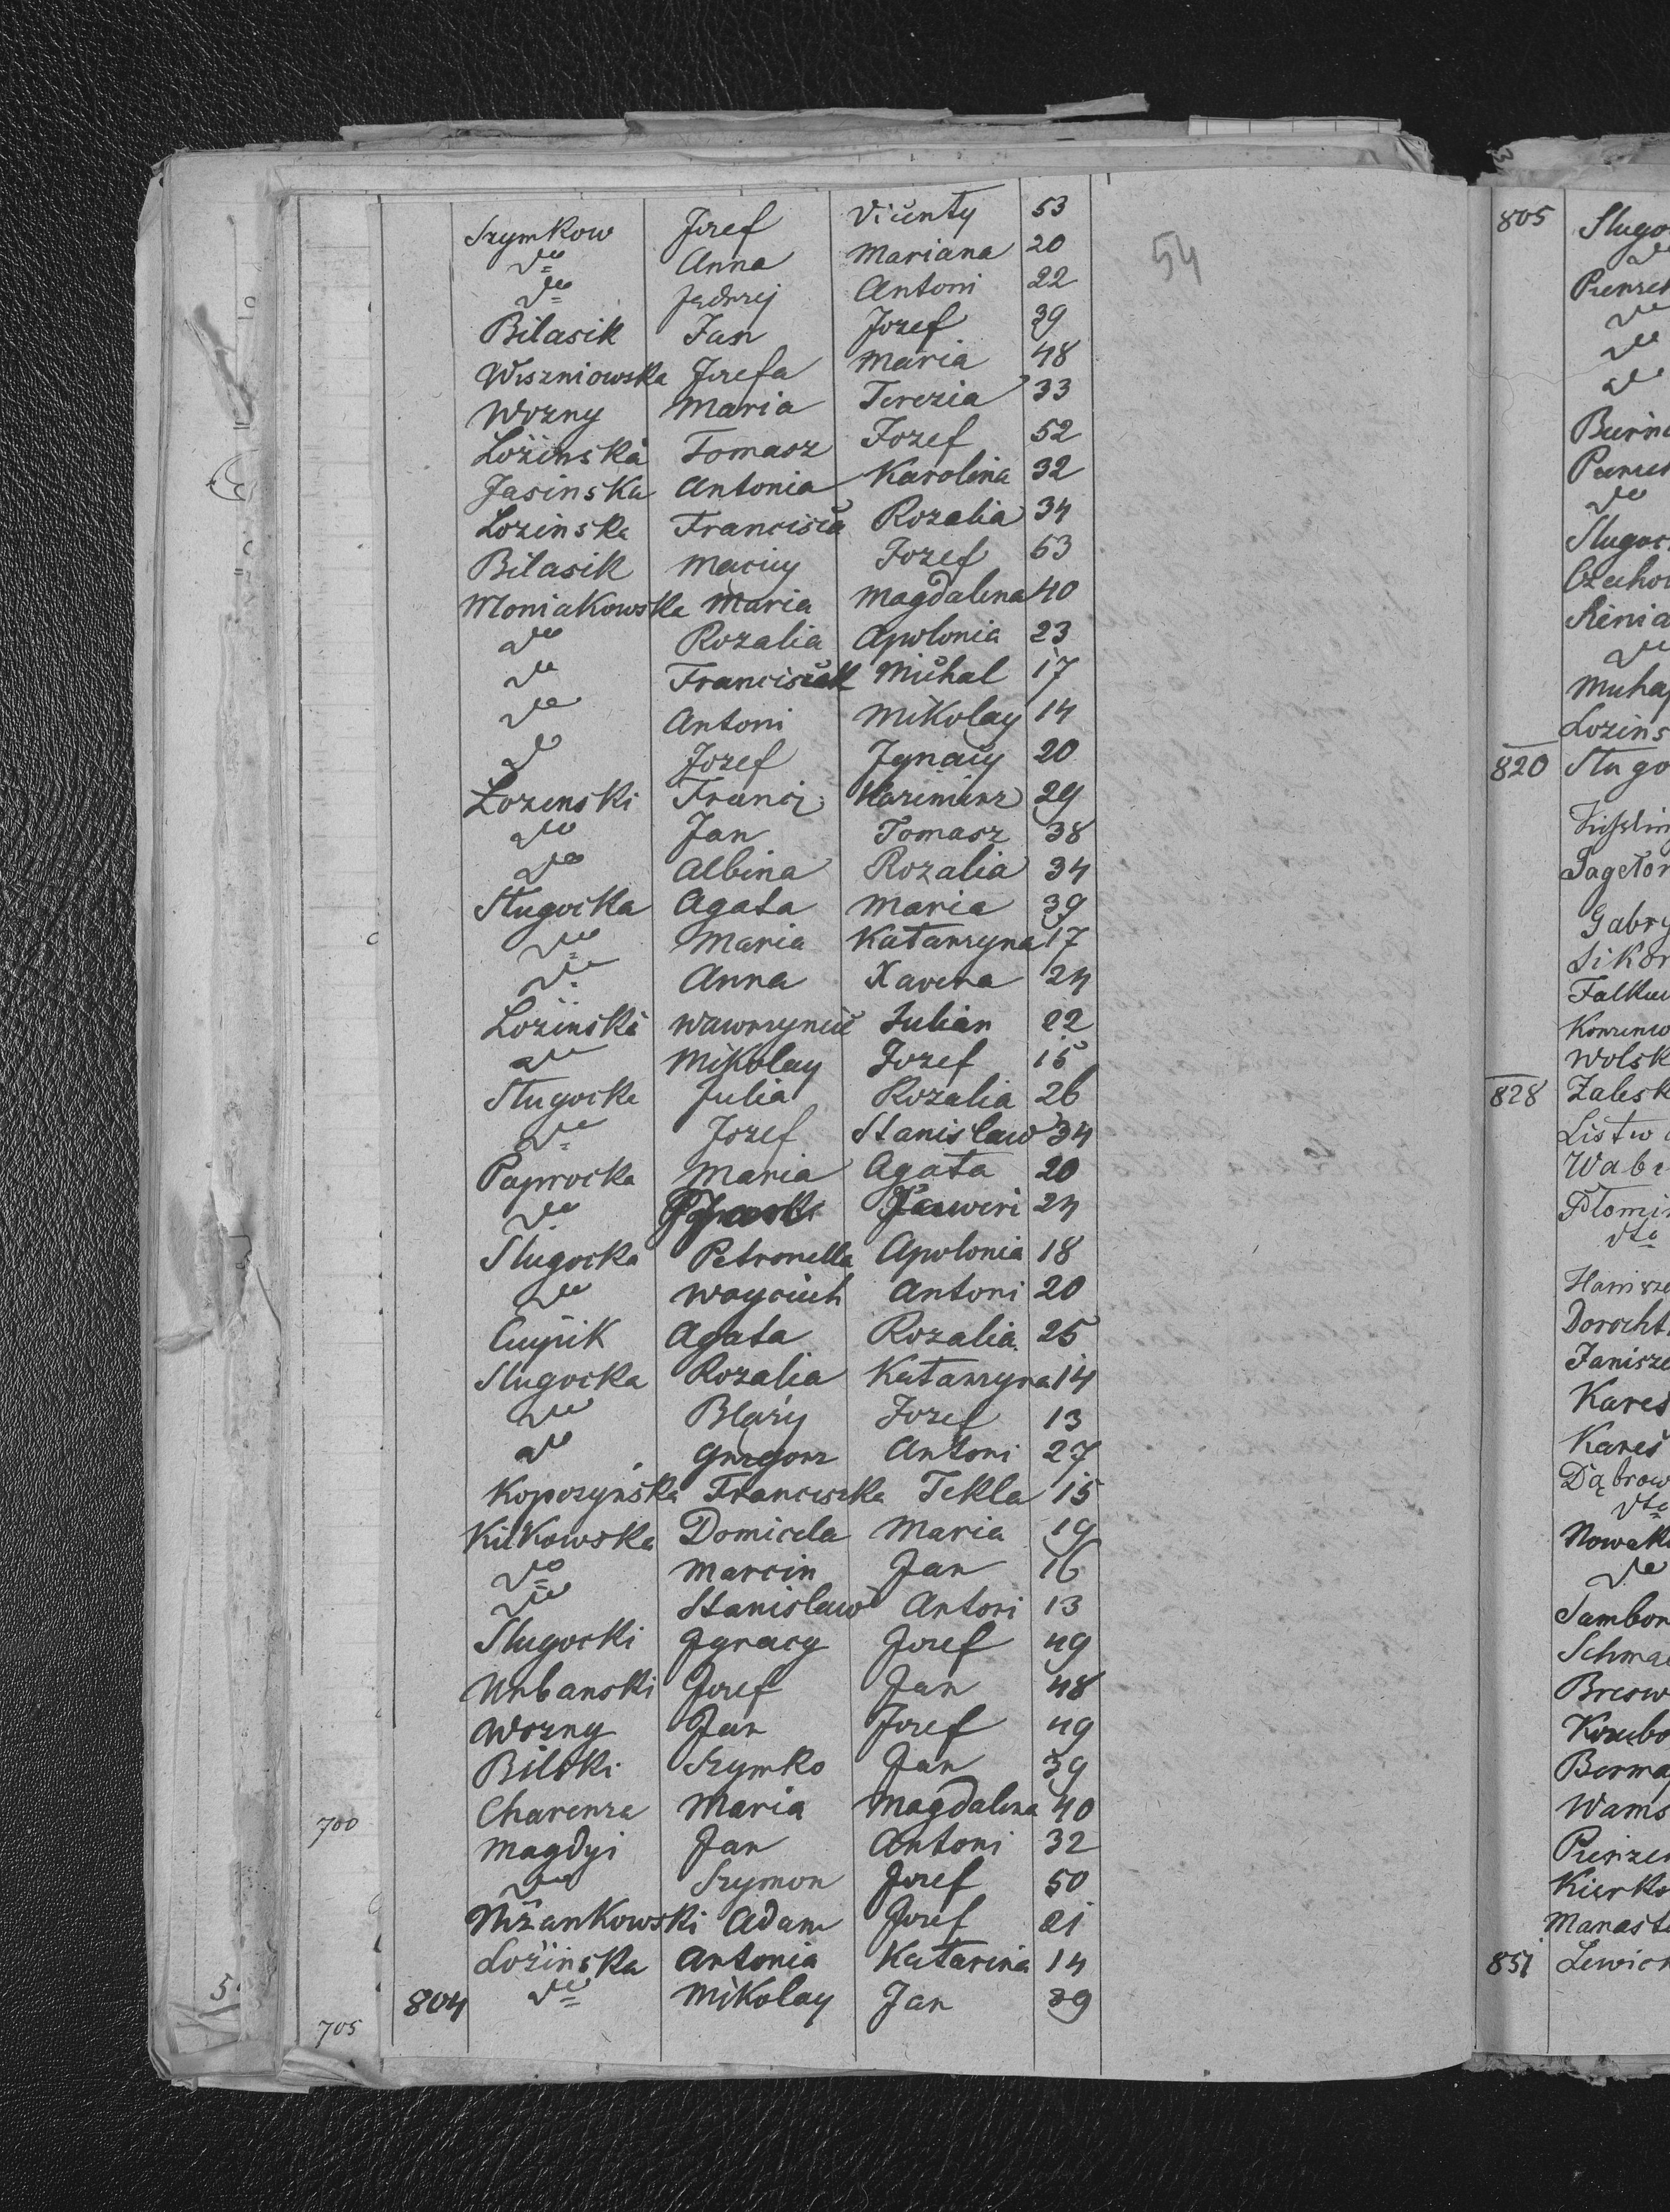 Szymkow Jozef Vicenty 53
dto Anna Mariana 20
dto Jędrzej Antoni 22
Bilasik Jan Jozef 39
Wiszniowska Jozefa Maria 48
Wozny Maria Terezia 33
Łozinska Tomasz Jozef 52
Jasinska Antonia Karolina 32
Łozinska Francisca Rozalia 34
Bilasik Maciey Jozef 53
Moniakowska Maria Magdalena 40
dto Rozalia Apolonia 23
dto Franciszek Michal 17
dto Antoni Mikolay 14
dto Jozef Jgnacy 20
Łozenski Franci: Kazimierz 29
dto Jan Tomasz 38
dto Albina Rozalia 34
Slugocka Agata Maria 39
dto Maria Katarzyna 17
dto Anna Xavera 24
Łozinska Wawrzyniec Julian 22
dto Mikolay Jozef 15
Slugocka Julia Rozalia 26
dto Jozef Stanislaw 34
Paprocka Maria Agata 20
dto Xaweri 24
Slugocka Petronella Apolonia 18
dto Woyciech Antoni 20
Cuipik Agata Rozalia 25
Slugocka Rozalia Katarzyna 14
dto Blazy Jozef 13
dto Grzegorz Antoni 27
Kopczynska Franciszka Tekla 15
Kilkowska Domicela Maria 19
dto Marcin Jan 16
dto Stanislaw Antoni 13
Slugocki Jgnacy Jozef 49
Urbanski Jozef Jan 48
Wozny Jan Jozef 49
Bilski Szymko Jan 39
Charenza Maria Magdalena 40
Magdyi Jan Antoni 32
dto Szymon Jozef 50
Niżankowski Adam Jozef 21
Łozinska Antonia Katarina 14
804 dto Mikolay Jan 39
54
700
705
5
805 Slugo
dto
Pienze
dto
dto
dto
Burne
dto
Slugoc
Czecho
Sienia
dto
Mucha
Lozins
820 Slugo
Gabry
Sikor
Falkie
Wolsk
828 Zalesk
Listw
Wabi
Płomi
dto
Hanisze
Dorocht
Janisze
Kares
Kares
Dąbrow
dto
Nowak
dto
Sambor
Schma
Bresw
Berma
Wams
Pienze
Kierko
Manast
851 Lewic